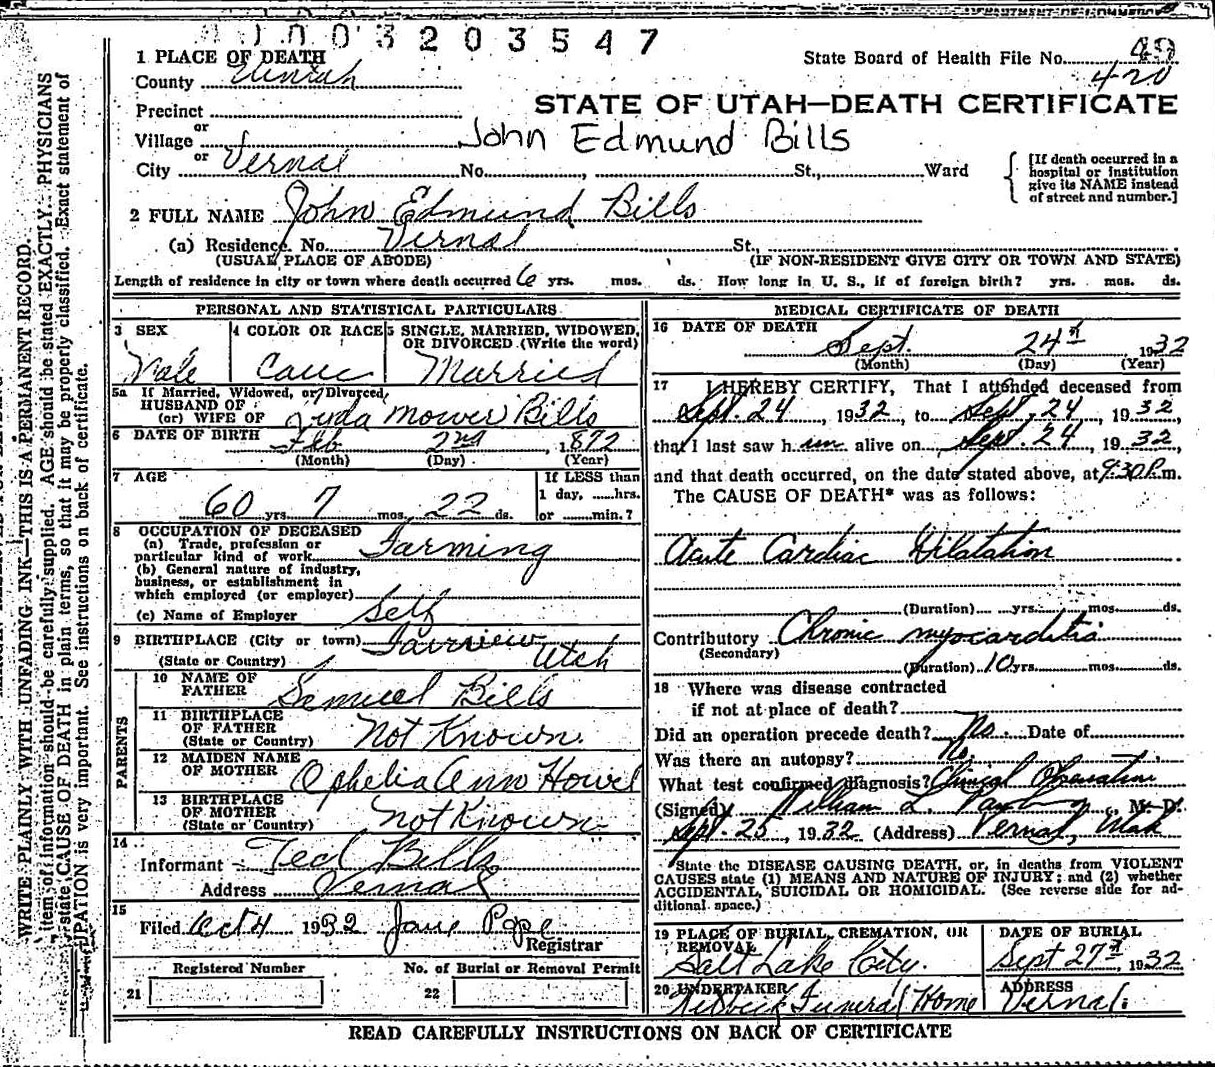 0003203547
1 PLACE OF DEATH
State Board of Health File No. 49
420
County Uintah
STATE OF UTAH—DEATH CERTIFICATE
Precinct
or
Village
John Edmund Bills
or
City Vernal No. , St., Ward
[If death occurred in a hospital or institution give its NAME instead of street and number.]
2 FULL NAME John Edmund Bills
(a) Residence. No. Vernal St.,
(USUAL PLACE OF ABODE) (IF NON-RESIDENT GIVE CITY OR TOWN AND STATE)
Length of residence in city or town where death occurred 6 yrs. mos. ds. How long in U. S., if of foreign birth? yrs. mos. ds.
PERSONAL AND STATISTICAL PARTICULARS
3 SEX
4 COLOR OR RACE
5 SINGLE, MARRIED, WIDOWED, OR DIVORCED (Write the word)
Male Cauc Married
5a If Married, Widowed, or Divorced
HUSBAND OF
(or) WIFE OF Mower Bills
6 DATE OF BIRTH Feb 2nd, 1872
(Month) (Day) (Year)
7 AGE
If LESS than
1 day, hrs.
60 yrs. 7 mos. 22 ds. or min.?
8 OCCUPATION OF DECEASED
(a) Trade, profession or
particular kind of work Farming
(b) General nature of industry,
business, or establishment in
which employed (or employer)
(c) Name of Employer Self
9 BIRTHPLACE (City or town) Fairview
(State or Country) Utah
PARENTS
10 NAME OF FATHER Samuel Bills
11 BIRTHPLACE OF FATHER
(State or Country) Not Known
12 MAIDEN NAME OF MOTHER Ophelia Ann Howel
13 BIRTHPLACE OF MOTHER
(State or Country) not Known
14
Informant Ted Bills
Address Vernal
15
Filed Oct 4 1932 Jane Pope
Registrar
Registered Number No. of Burial or Removal Permit
21 22
MEDICAL CERTIFICATE OF DEATH
16 DATE OF DEATH
Sept. 24th 1932
(Month) (Day) (Year)
17 I HEREBY CERTIFY, That I attended deceased from
Sept. 24, 1932, to Sept. 24, 1932,
that I last saw h im alive on Sept. 24, 1932,
and that death occurred, on the date stated above, at 9:30 P. m.
The CAUSE OF DEATH* was as follows:
Acute Cardiac Dilatation
(Duration) yrs. mos. ds.
Contributory Chronic myocarditis
(Secondary)
(Duration) 10 yrs. mos. ds.
18 Where was disease contracted
if not at place of death?
Did an operation precede death? No. Date of
Was there an autopsy? No.
What test confirmed diagnosis? Clinical
(Signed) William L. M. D.
Sept. 25, 1932 (Address) Vernal, Utah
*State the DISEASE CAUSING DEATH, or, in deaths from VIOLENT
CAUSES state (1) MEANS AND NATURE OF INJURY; and (2) whether
ACCIDENTAL, SUICIDAL OR HOMICIDAL. (See reverse side for additional space.)
19 PLACE OF BURIAL, CREMATION, OR REMOVAL
Salt Lake City.
DATE OF BURIAL
Sept 27th, 1932
20 UNDERTAKER
Funeral Home
ADDRESS
Vernal.
READ CAREFULLY INSTRUCTIONS ON BACK OF CERTIFICATE
WRITE PLAINLY WITH UNFADING INK—THIS IS A PERMANENT RECORD.
item of information should be carefully supplied. AGE should be stated EXACTLY. PHYSICIANS
state CAUSE OF DEATH in plain terms, so that it may be properly classified. Exact statement of
UPATION is very important. See instructions on back of certificate.